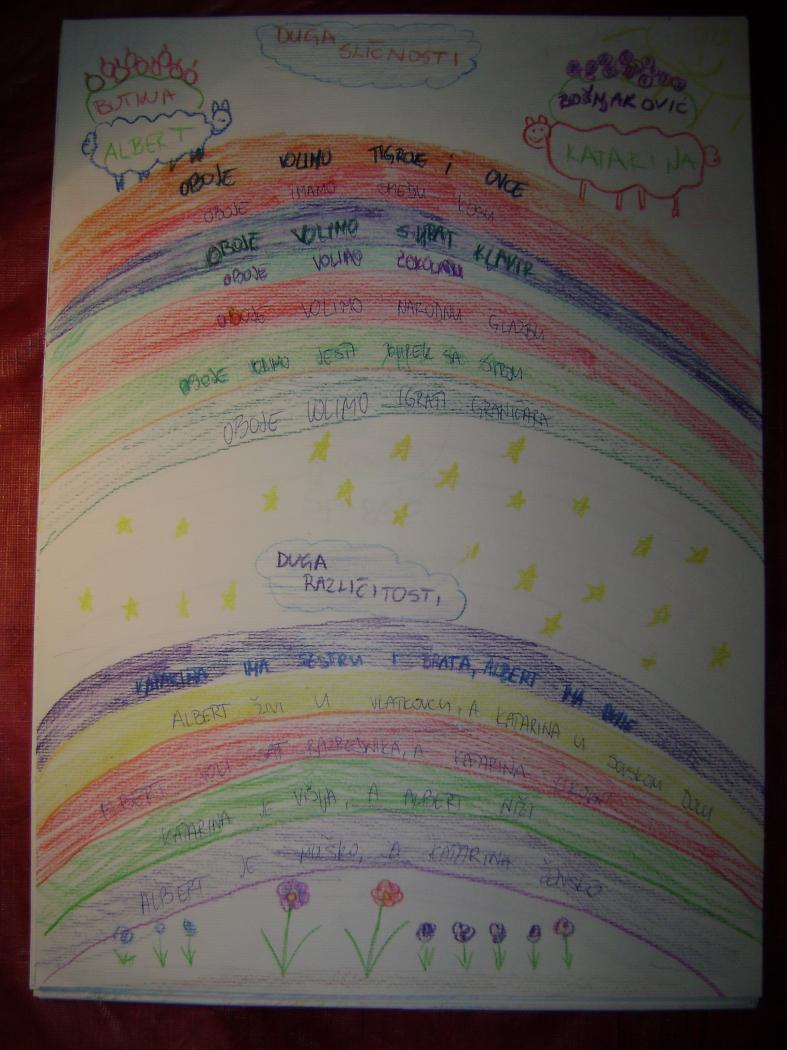 DUGA
SLIČNOSTI
BUTINA
ALBERT
BOŠNJAKOVIĆ
KATARINA
OBOJE VOLIMO TIGROVE i OVCE
OBOJE IMAMO SMEĐU KOSU
OBOJE VOLIMO SVIRAT KLAVIR
OBOJE VOLIMO ČOKOLADU
OBOJE VOLIMO NARODNU GLAZBU
OBOJE VOLIMO JESTI SA
OBOJE VOLIMO IGRATI GRANIČARA
DUGA
RAZLIČITOSTI
KATARINA IMA SESTRU I BRATA, ALBERT IMA
ALBERT ŽIVI U VLATKOVCU, A KATARINA U DOLU
ALBERT VOLI SAT RAZREDNIKA, A KATARINA
KATARINA JE VIŠJA, A ALBERT NIŽI
ALBERT JE MUŠKO, A KATARINA ŽENSKO